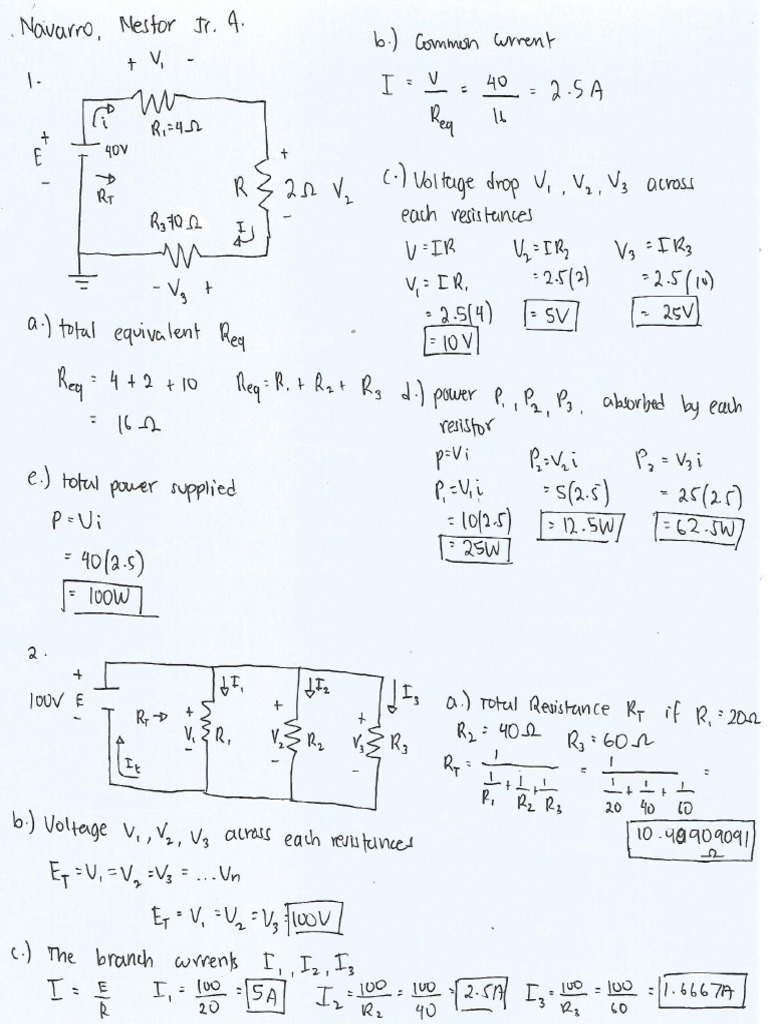 Navarro, Nestor Jr. A.
1.
+ V₁ -
i
R₁=4Ω
+
E
-
40V
R_T
+
R 2Ω V₂
-
R₃ 10Ω
I
- V₃ +
a.) total equivalent Req
Req = 4 + 2 + 10 Req = R₁ + R₂ + R₃
= 16 Ω
b.) Common current
I = V/Req = 40/16 = 2.5 A
c.) Voltage drop V₁, V₂, V₃ across
each resistances
V = IR V₂ = IR₂ V₃ = IR₃
V₁ = IR₁ = 2.5(2) = 2.5(10)
= 2.5(4) = 5V = 25V
= 10V
d.) power P₁, P₂, P₃, absorbed by each
resistor
p=Vi P₂=V₂i P₂ = V₃i
P₁=V₁i = 5(2.5) = 25(2.5)
= 10(2.5) = 12.5W = 62.5W
= 25W
e.) total power supplied
P = Vi
= 40(2.5)
= 100W
2.
+
100V E
-
R_T
I_t
I₁ I₂ I₃
+ + +
V₁ R₁ V₂ R₂ V₃ R₃
- - -
a.) Total Resistance R_T if R₁ = 20Ω
R₂ = 40Ω R₃ = 60Ω
R_T = 1/(1/R₁ + 1/R₂ + 1/R₃) = 1/(1/20 + 1/40 + 1/60) =
10.90909091
Ω
b.) Voltage V₁, V₂, V₃ across each resistances
E_T = V₁ = V₂ = V₃ = ... Vn
E_T = V₁ = V₂ = V₃ = 100V
c.) The branch currents I₁, I₂, I₃
I = E/R I₁ = 100/20 = 5A I₂ = 100/R₂ = 100/40 = 2.5A I₃ = 100/R₃ = 100/60 = 1.6667A